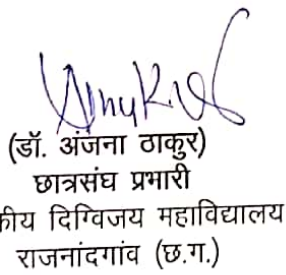 (डॉ. अंजना ठाकुर)
छात्रसंघ प्रभारी
दिग्विजय महाविद्यालय
राजनांदगांव (छ.ग.)